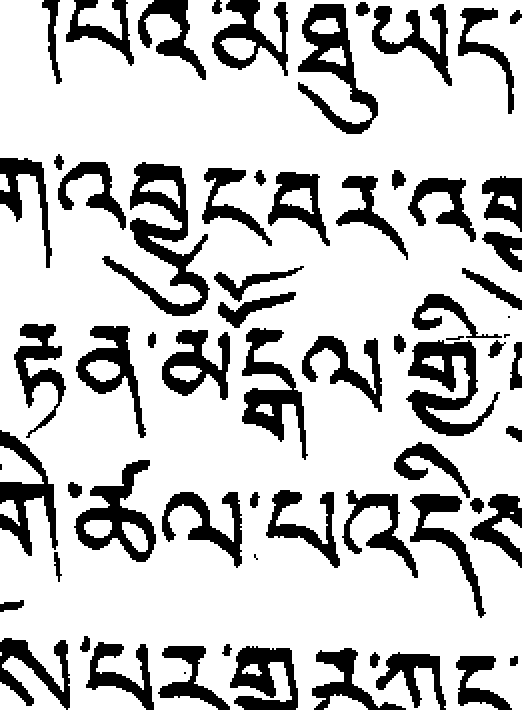 །པའི་མཐུ་ཡང་
ག་འབྱུང་བར་འ
རྟན་མཽངྒལ་གྱི་
གི་ཚལ་པའདི
ས་པར་གྱུར་ཀྱང་